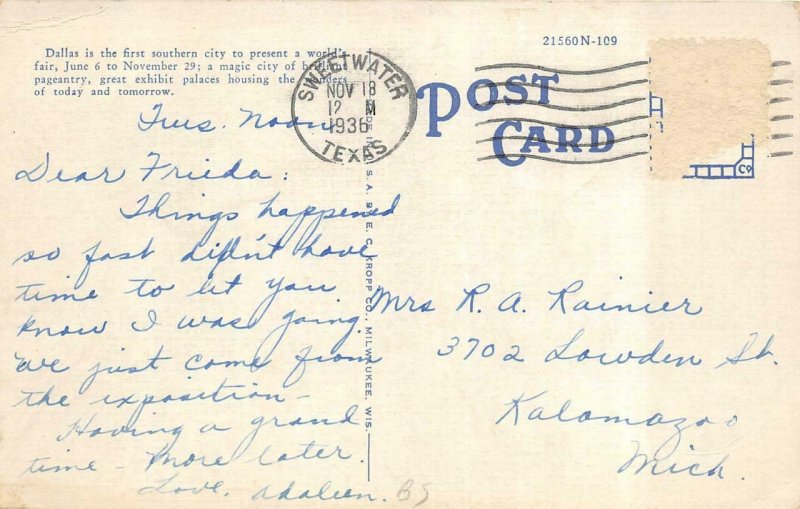 Dallas is the first southern city to present a world's
fair, June 6 to November 29; a magic city of brilliant
pageantry, great exhibit palaces housing the wonders
of today and tomorrow.
21560N-109
SWEETWATER
NOV 18
12 M
1936
TEXAS
POST
CARD
Tues. Noon
Dear Frieda:
Things happened
so fast didn't have
time to let you
know I was going.
We just come from
the exposition -
Having a grand
time - More later.
Love, Adaleen.
BS
MADE IN U.S.A. BY E. C. KROPP CO., MILWAUKEE, WIS.
Mrs R. A. Rainier
3702 Lowden St.
Kalamazoo
Mich.
Co